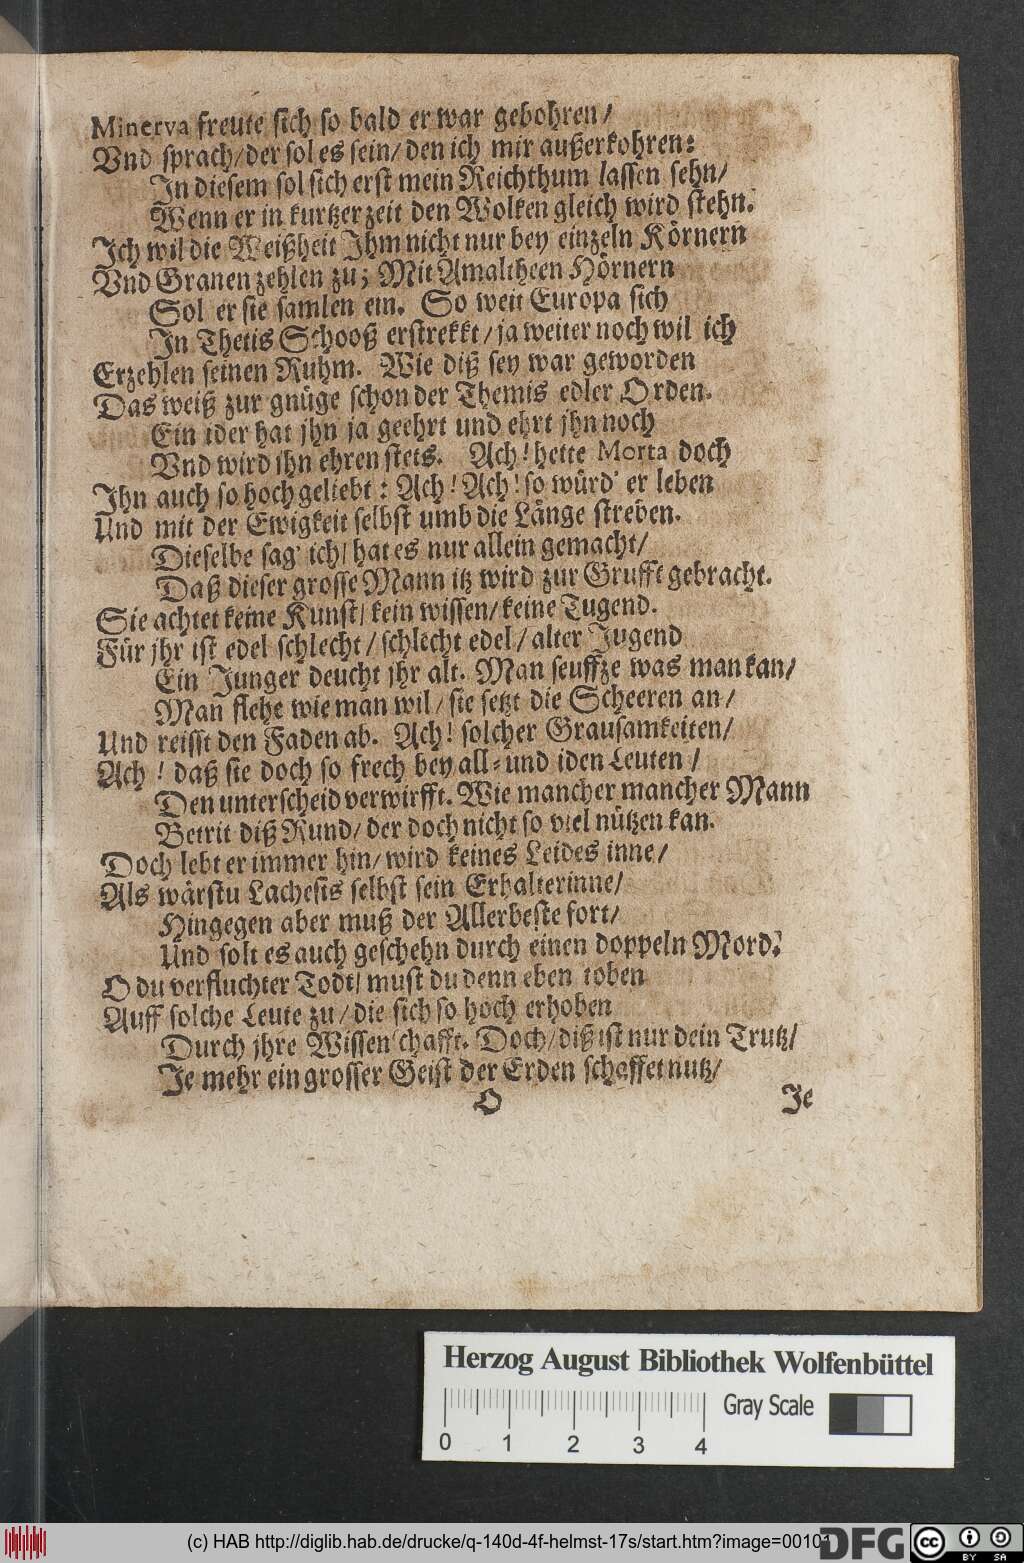 Minerva freute sich so bald er war gebohren/
Vnd sprach/der sol es sein/den ich mir außerkohren:
In diesem sol sich erst mein Reichthum lassen sehn/
Wenn er in kurtzer zeit den Wolken gleich wird stehn.
Ich wil die Weißheit Ihm nicht nur bey einzeln Körnern
Vnd Granen zehlen zu; Mit Amaltheen Hörnern
Sol er sie samlen ein. So weit Europa sich
In Thetis Schooß erstrekkt/ja weiter noch wil ich
Erzehlen seinen Ruhm. Wie diß sey war geworden
Das weiß zur gnüge schon der Themis edler Orden.
Ein ider hat jhn ja geehrt und ehrt jhn noch
Vnd wird ihn ehren stets. Ach! hette Morta doch
Ihn auch so hoch geliebt: Ach! Ach! so würd' er leben
Und mit der Ewigkeit selbst umb die Länge streben.
Dieselbe sag' ich/hat es nur allein gemacht/
Daß dieser grosse Mann itz wird zur Grufft gebracht.
Sie achtet keine Kunst/kein wissen/keine Tugend.
Für jhr ist edel schlecht/schlecht edel/alter Jugend
Ein Junger deucht jhr alt. Man seuffze was man kan/
Man flehe wie man wil/sie setzt die Scheeren an/
Und reisst den Faden ab. Ach! solcher Grausamkeiten/
Ach! daß sie doch so frech bey all-und iden Leuten/
Den unterscheid verwirfft. Wie mancher mancher Mann
Betrit diß Rund/der doch nicht so viel nützen kan.
Doch lebt er immer hin/wird keines Leides inne/
Als wärstu Lachesis selbst sein Erhalterinne/
Hingegen aber muß der Allerbeste fort/
Und solt es auch geschehn durch einen doppeln Mord.
O du verfluchter Todt/must du denn eben toben
Auff solche Leute zu/die sich so hoch erhoben
Durch jhre Wissenschafft. Doch/diß ist nur dein Trutz/
Je mehr ein grosser Geist der Erden schaffet nutz/
O Je
Herzog August Bibliothek Wolfenbüttel
Gray Scale
0 1 2 3 4
(c) HAB http://diglib.hab.de/drucke/q-140d-4f-helmst-17s/start.htm?image=00101
DFG
cc BY SA